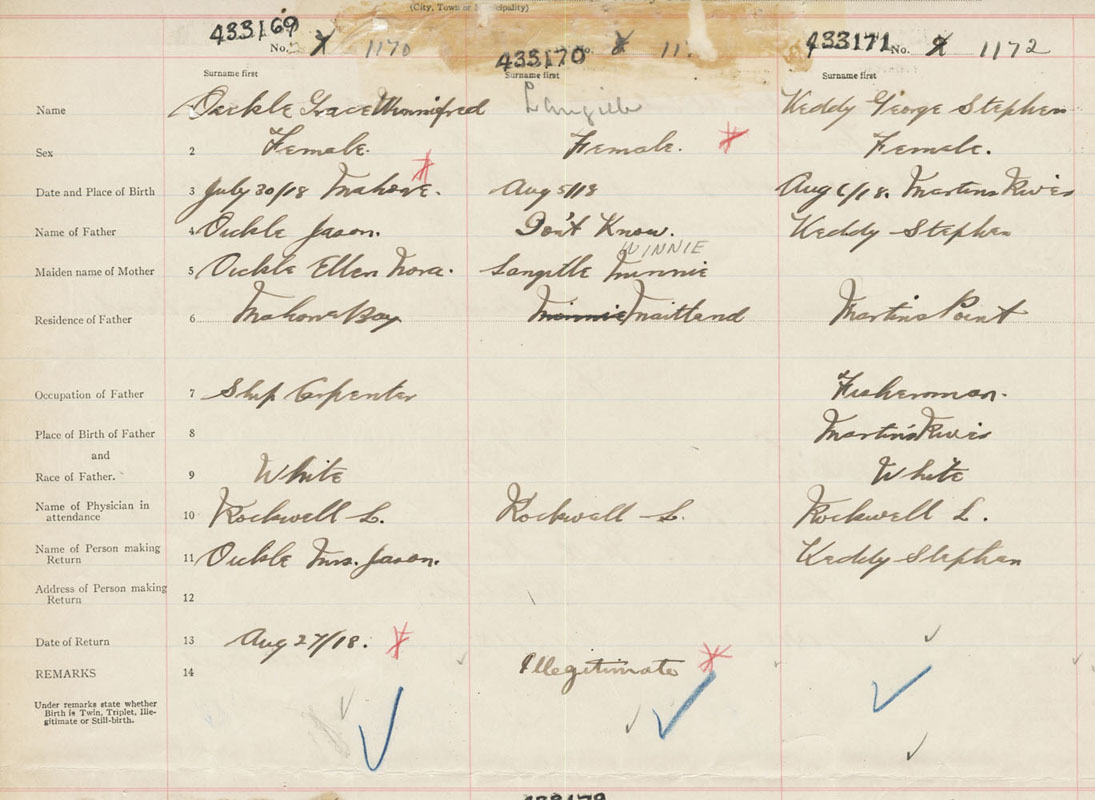 (City, Town or Municipality)
433169 No. 1170
433170 No. 8 11
433171 No. 9 1172
Surname first Surname first Surname first
Name 1 Oickle Grace Winnifred Langille Keddy George Stephen
Sex 2 Female. Female. Female.
Date and Place of Birth 3 July 30/18 Mahone. Aug 5/18 Aug 6/18. Martins River
Name of Father 4 Oickle Jason. Don't Know. Keddy Stephen
WINNIE
Maiden name of Mother 5 Oickle Ellen Nora. Langille Minnie
Residence of Father 6 Mahone Bay Minnie Maitland Martins Point
Occupation of Father 7 Ship Carpenter Fisherman.
Place of Birth of Father 8 Martins River
and
Race of Father. 9 White White
Name of Physician in
attendance 10 Rockwell L. Rockwell L. Rockwell L.
Name of Person making
Return 11 Oickle Mrs. Jason. Keddy Stephen
Address of Person making
Return 12
Date of Return 13 Aug 27/18.
REMARKS 14 Illegitimate
Under remarks state whether
Birth is Twin, Triplet, Ille-
gitimate or Still-birth.